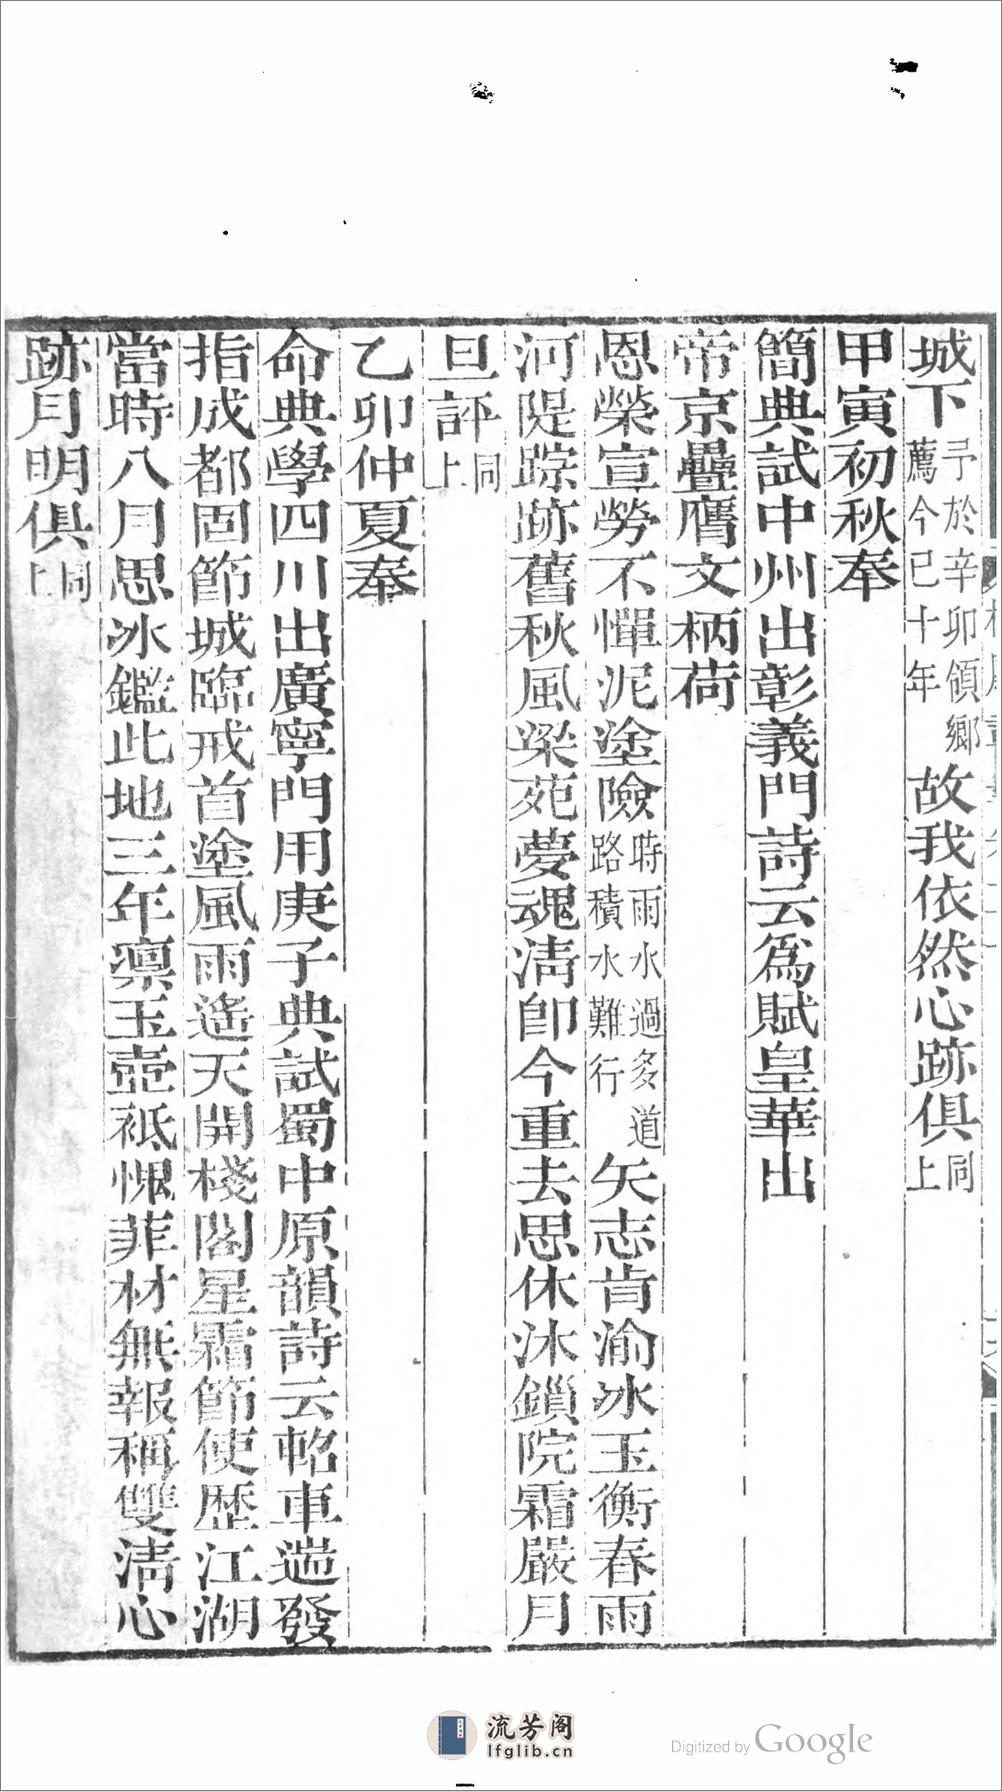 城下予於辛卯領鄉薦今已十年故我依然心跡俱同上
甲寅初秋奉
簡典試中州出彰義門詩云爲賦皇華出
帝京疊膺文柄荷
恩榮宣勞不憚泥塗險時雨水過多道路積水難行矢志肯渝冰玉衡春雨
河隄踪跡舊秋風梁苑夢魂淸卽今重去思休沐鎖院霜嚴月
旦評同上
乙卯仲夏奉
命典學四川出廣寧門用庚子典試蜀中原韻詩云軺車遄發
指成都固節城臨戒首塗風雨遙天開棧閣星霜節使歷江湖
當時八月思冰鑑此地三年凜玉壺祗愧菲材無報稱雙淸心
跡月明俱同上
流芳阁
lfglib.cn
Digitized by Google